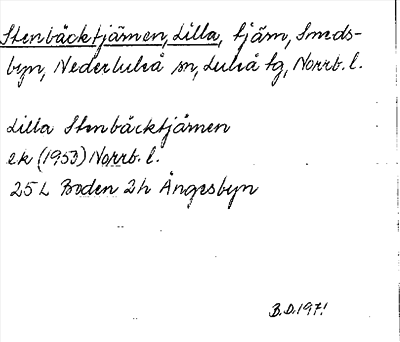 Stenbäcktjärnen, Lilla, tjärn, Smeds-
byn, Nederluleå sn, Luleå tg, Norrb. l.
Lilla Stenbäcktjärnen
ek (1953) Norrb. l.
25 L Boden 2h Ängesbyn
B.D. 1971